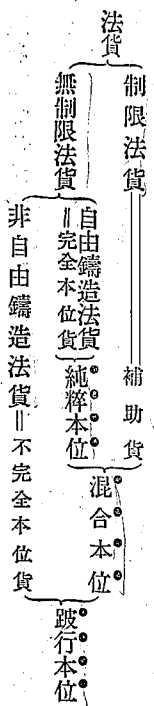 法貨
制限法貨
補助貨
無制限法貨
自由鑄造法貨
＝完全本位貨
純粹本位
混合本位
非自由鑄造法貨＝不完全本位貨
跛行本位